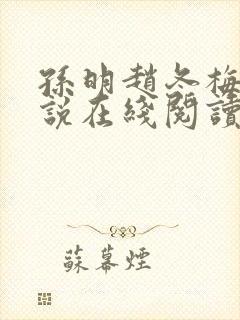 孫明趙冬梅
說在綫閱讀
蘇幕煙